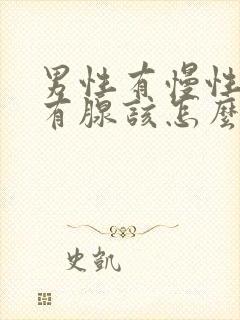 男性有慢性
有腺該怎麼
史凱